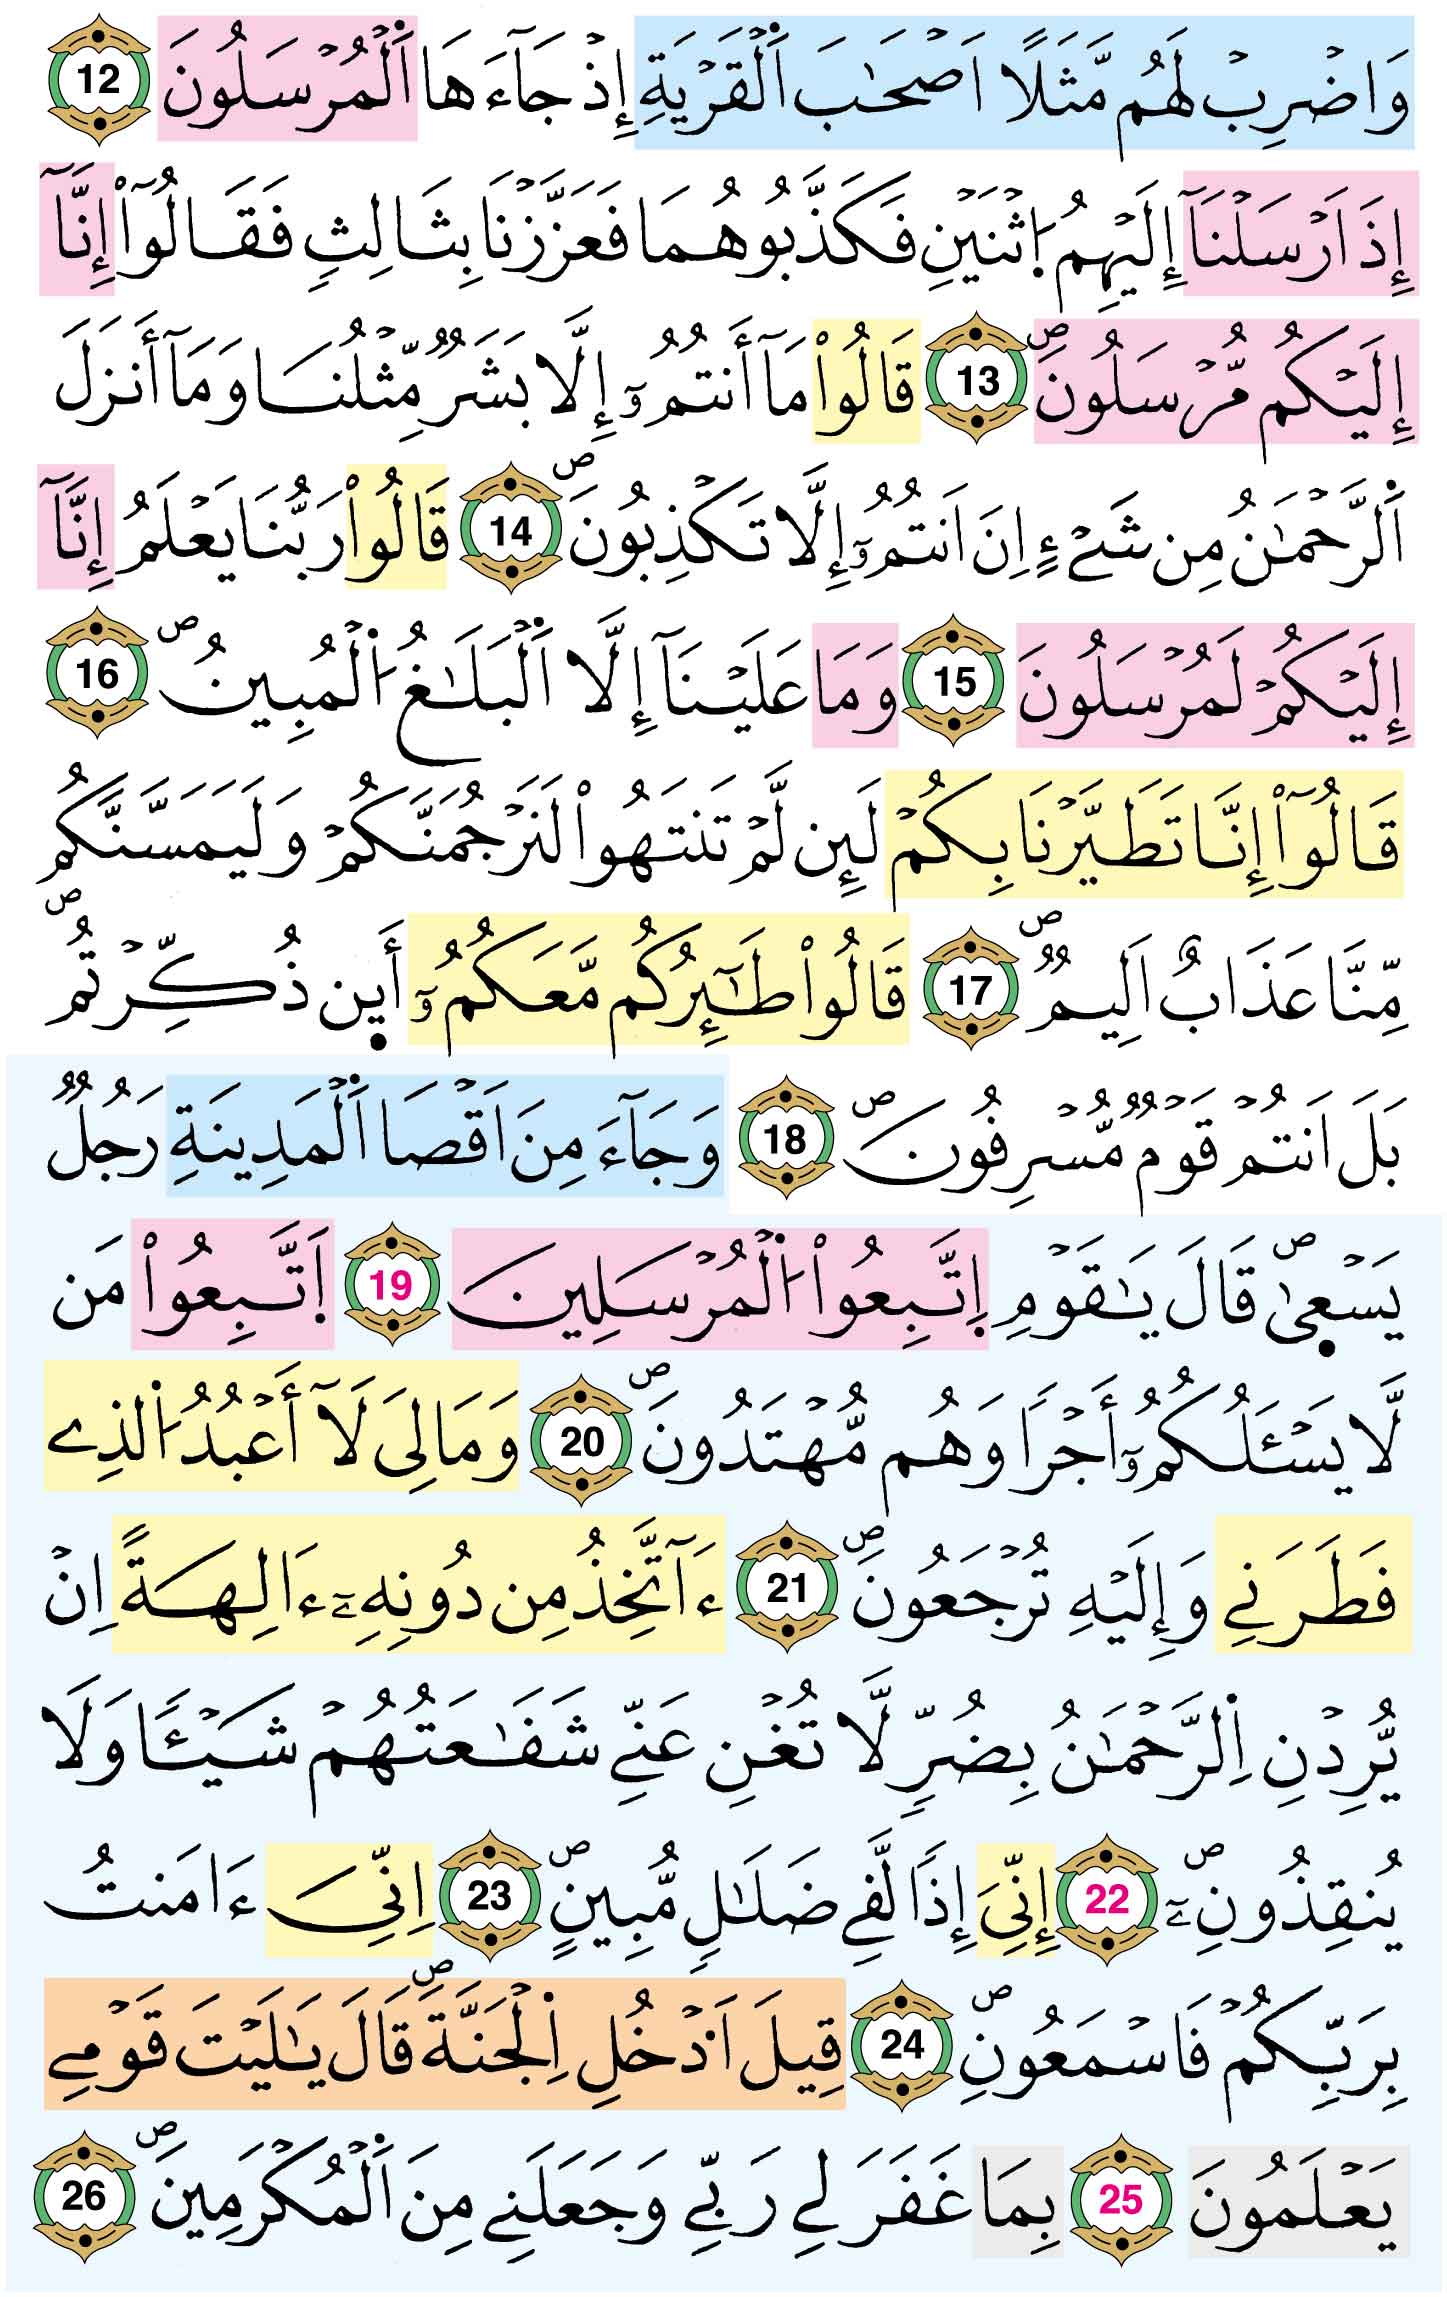 وَاضْرِبْ لَهُم مَّثَلًا اَصْحَٰبَ اَ۬لْقَرْيَةِ إِذْ جَآءَهَا اَ۬لْمُرْسَلُونَ 12
إِذَ اَرْسَلْنَآ إِلَيْهِمُ اُ۪ثْنَيْنِ فَكَذَّبُوهُمَا فَعَزَّزْنَا بِثَالِثٍ فَقَالُوٓاْ إِنَّآ
إِلَيْكُم مُّرْسَلُونَۖ 13 قَالُواْ مَآ أَنتُمُۥٓ إِلَّا بَشَرٌ مِّثْلُنَا وَمَآ أَنزَلَ
اَ۬لرَّحْمَٰنُ مِن شَےْءٍ اِنَ اَنتُمُۥٓ إِلَّا تَكْذِبُونَۖ 14 قَالُواْ رَبُّنَا يَعْلَمُ إِنَّآ
إِلَيْكُمْ لَمُرْسَلُونَ 15 وَمَا عَلَيْنَآ إِلَّا اَ۬لْبَلَٰغُ اُ۬لْمُبِينُۖ 16
قَالُوٓاْ إِنَّا تَطَيَّرْنَا بِكُمْ لَئِن لَّمْ تَنتَهُواْ لَنَرْجُمَنَّكُمْ وَلَيَمَسَّنَّكُم
مِّنَّا عَذَابٌ اَلِيمٌۖ 17 قَالُواْ طَٰٓئِرُكُم مَّعَكُمُۥٓ أَي۪ن ذُكِّرْتُمۖ
بَلَ اَنتُمْ قَوْمٌ مُّسْرِفُونَۖ 18 وَجَآءَ مِنَ اَقْصَا اَ۬لْمَدِينَةِ رَجُلٌ
يَسْع۪ىٰۖ قَالَ يَٰقَوْمِ اِ۪تَّبِعُواْ اُ۬لْمُرْسَلِينَ 19 اَ۪تَّبِعُواْ مَن
لَّا يَسْـَٔلُكُمُۥٓ أَجْرًا وَهُم مُّهْتَدُونَۖ 20 وَمَا لِىَ لَآ أَعْبُدُ اُ۬لذِے
فَطَرَنِے وَإِلَيْهِ تُرْجَعُونَۖ 21 ءَآتَّخِذُ مِن دُونِهِۦٓ ءَالِهَةً اِنْ
يُّرِدْنِ اِ۬لرَّحْمَٰنُ بِضُرٍّ لَّا تُغْنِ عَنِّے شَفَٰعَتُهُمْ شَيْـًٔا وَلَا
يُنقِذُونِۦٓۖ 22 إِنِّىَ إِذًا لَّفِے ضَلَٰلٍ مُّبِينٍۖ 23 اِنِّىَ ءَامَنتُ
بِرَبِّكُمْ فَاسْمَعُونِۖ 24 قِيلَ اَ۟دْخُلِ اِ۬لْجَنَّةَۖ قَالَ يَٰلَيْتَ قَوْمِے
يَعْلَمُونَ 25 بِمَا غَفَرَ لِے رَبِّے وَجَعَلَنِے مِنَ اَ۬لْمُكْرَمِينَۖ 26